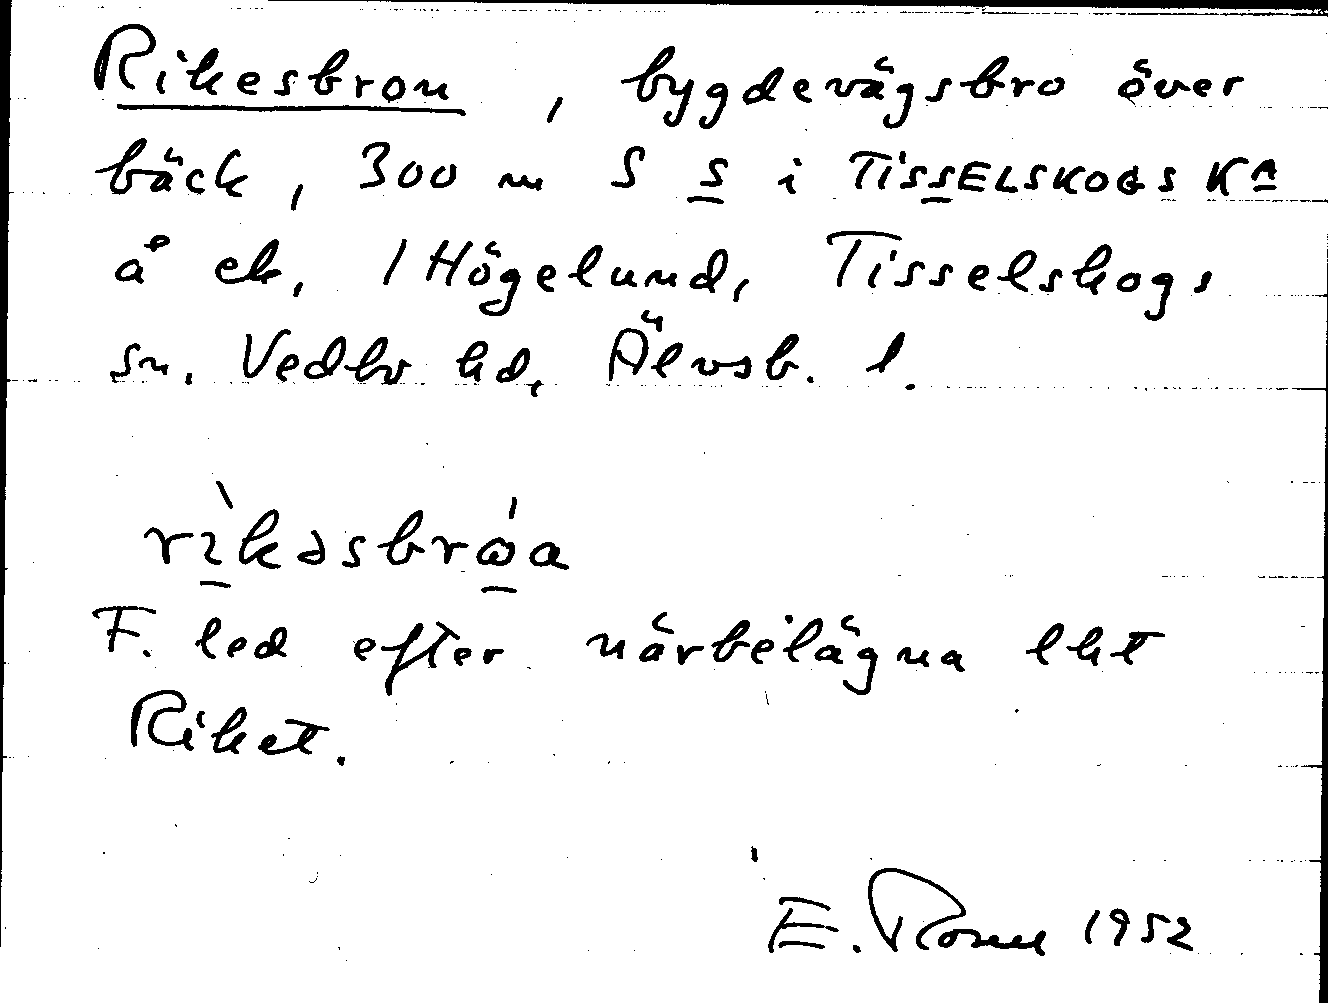 Rikesbron, bygdevägsbro över
bäck, 300 m S s i TISSELSKOGS KA
å ek, 1 Högelund, Tisselskogs
sn. Vedbo hd, Älvsb. l.
rìkəsbrώa
F. led efter närbelägna lht
Riket.
E. 1952